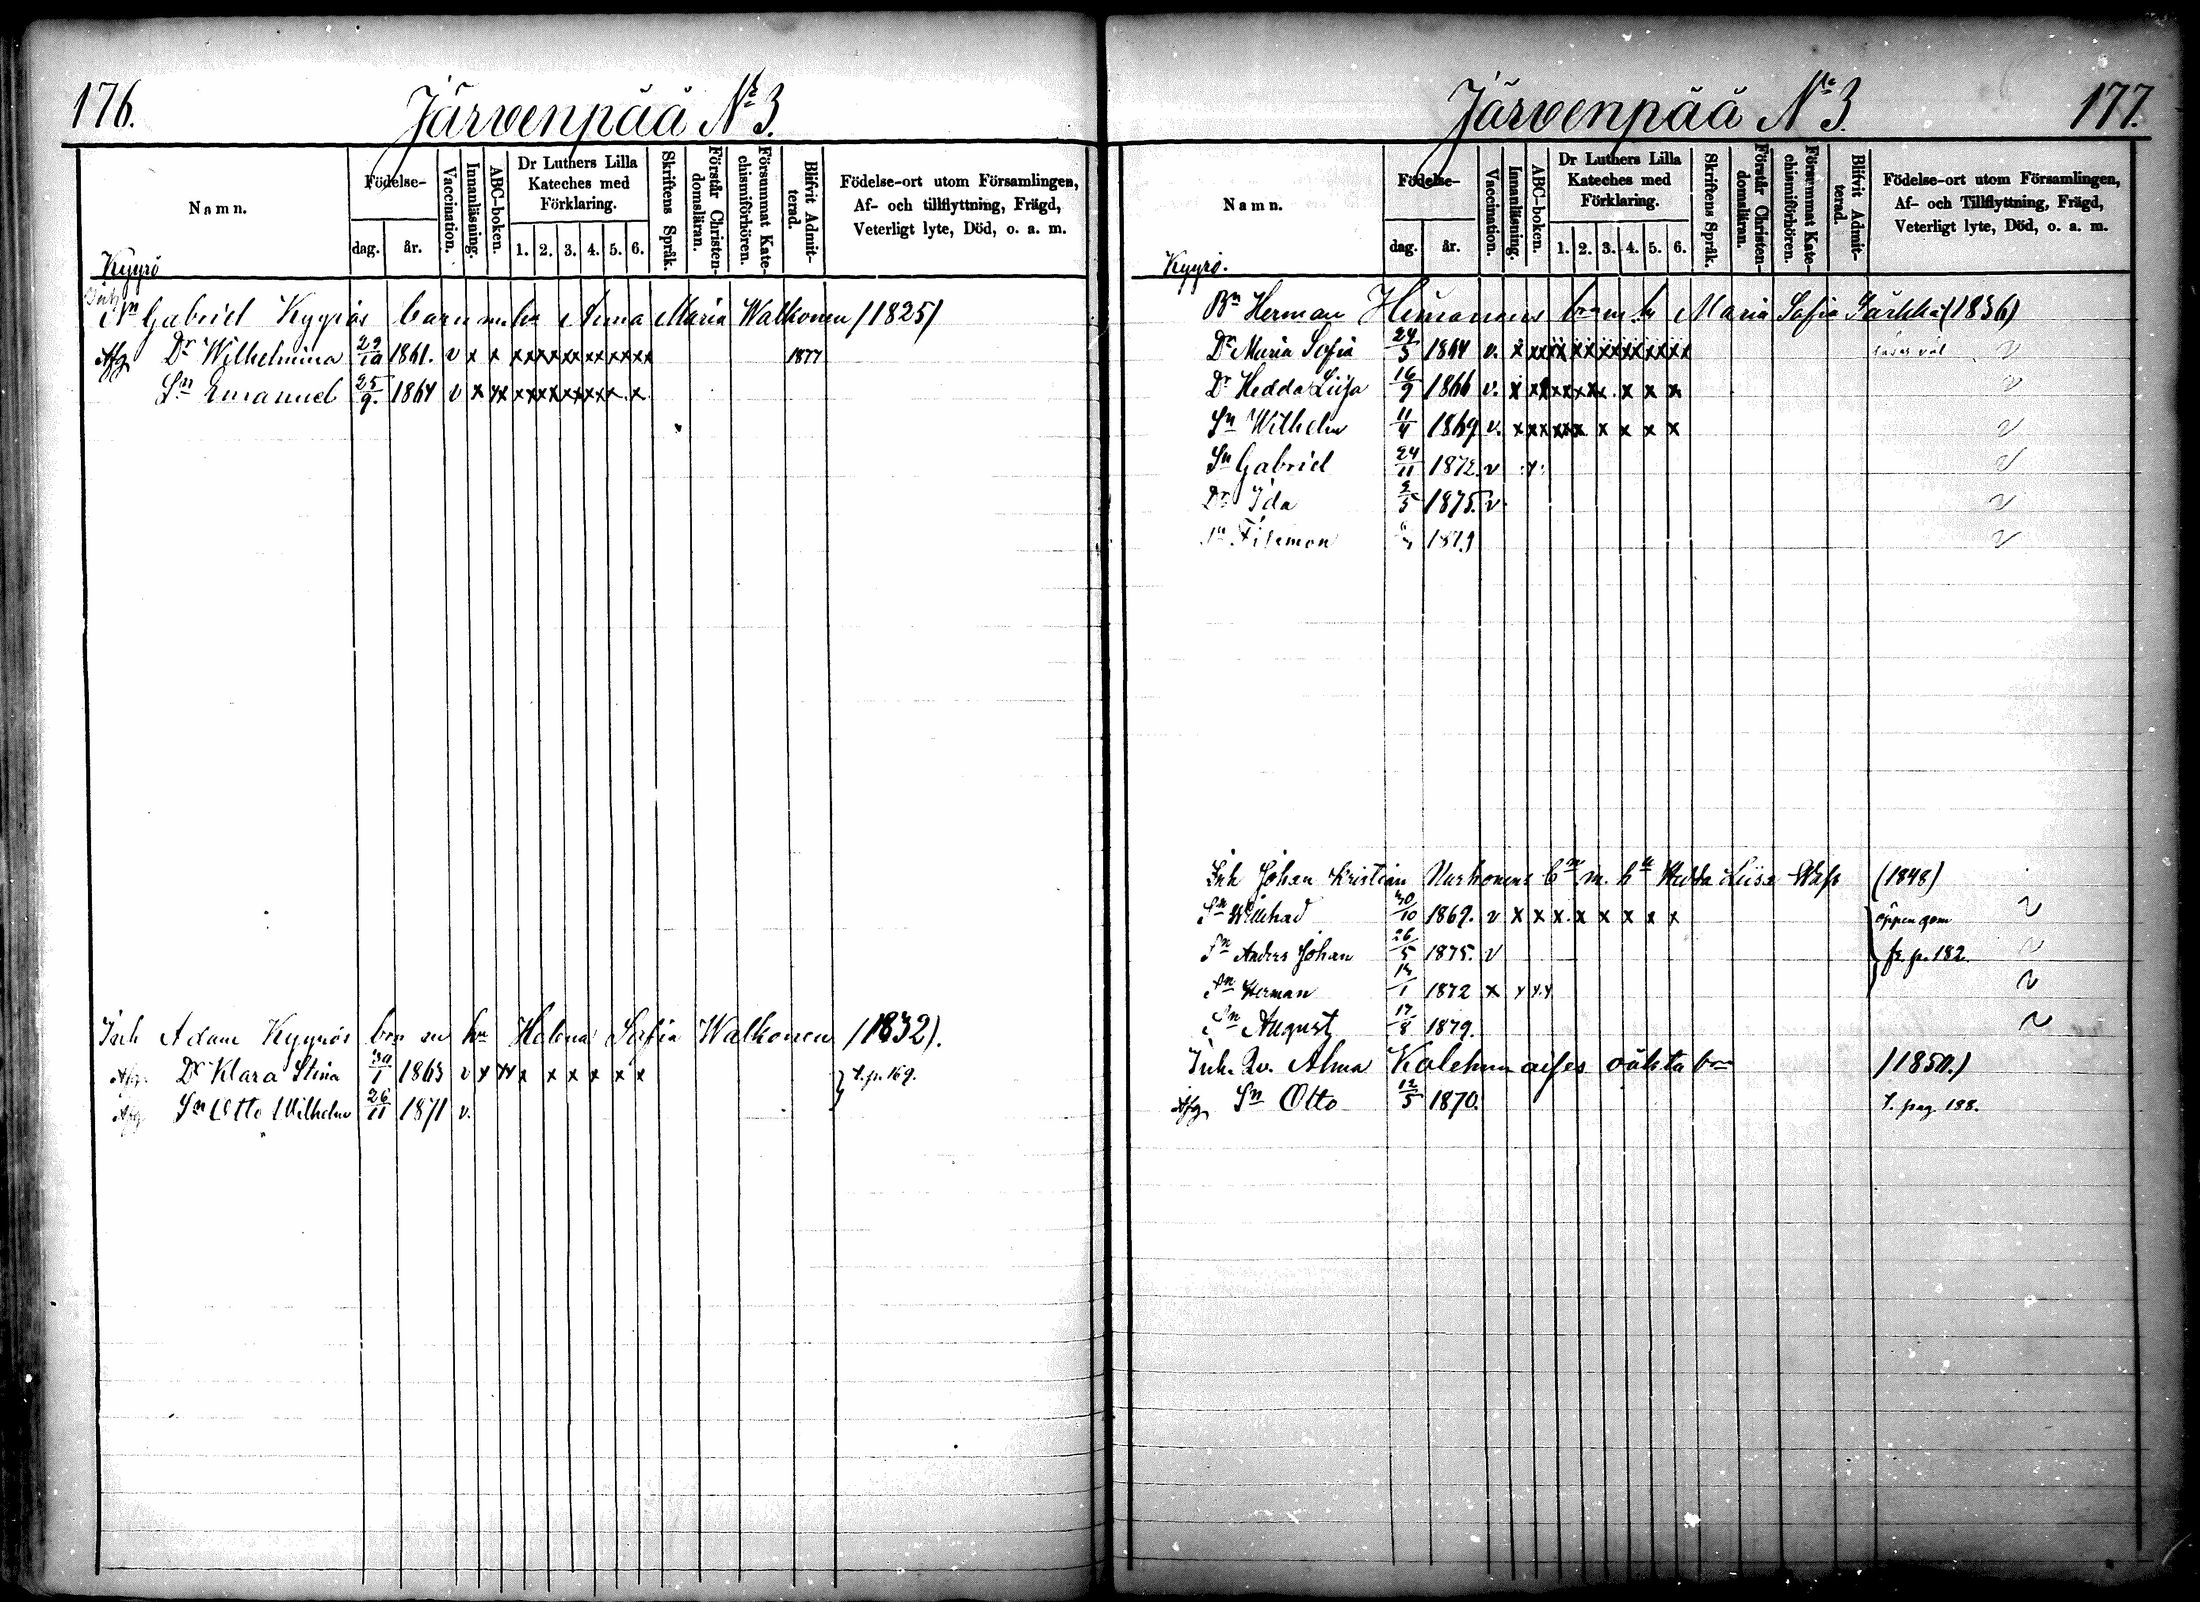 176.
Järvenpää No 3.
Namn.
Födelse-
dag.
år.
Vaccination.
Innanläsning.
ABC-boken.
Dr Luthers Lilla Kateches med Förklaring.
1. 2. 3. 4. 5. 6.
Skriftens Språk.
Förstår Christendomsläran.
Försummat Katechismiförhören.
Blifvit Admitterad.
Födelse-ort utom Församlingen,
Af- och tillflyttning, Frägd,
Veterligt lyte, Död, o. a. m.
Kyyrö
Gabriel Kyyrös barn m hn Anna Maria Walkonen (1825)
Afg Dr Wilhelmina 29/10 1861. v x x xx xx xx xx xx xx 1877
Sn Emanuel 25/9. 1864 v x xx xx xx xx xx x. x
Inh Adam Kyyrös brn m hn Helena Sofia Walkonen (1832).
Afg. Dr Klara Stina 30/1 1863 v x xx x x x x x x t. p. 169.
Afg Sn Otto Wilhelm 26/11 1871 v.
Järvenpää No 3.
177.
Namn.
Födelse-
dag.
år.
Vaccination.
Innanläsning.
ABC-boken.
Dr Luthers Lilla Kateches med Förklaring.
1. 2. 3. 4. 5. 6.
Skriftens Språk.
Förstår Christendomsläran.
Försummat Katechismiförhören.
Blifvit Admitterad.
Födelse-ort utom Församlingen,
Af- och Tillflyttning, Frägd,
Veterligt lyte, Död, o. a. m.
Kyyrö.
Bn Herman Heimonens barn m. h Maria Sofia (1836)
Dr Maria Sofia 24/5 1864 v. läser väl
Dr Hedda Liisa 16/9 1866 v.
Sn Wilhelm 11/4 1869 v.
Sn Gabriel 24/11 1872. v
Dr Ida 2/5 1875. v
Sn Filemon 1879
Inh Johan Kristian Nurhonens bn m. hu Hedda Liisa (1848)
Sn Willehad 30/10 1869. v x x x x x x x x öppen gom
Sn Anders Johan 26/5 1875. v fr. p. 182.
Sn Herman 1872 x x x x
Sn August 17/8 1879.
Inh. Qv. Alma Kolehmaises oäkta bn (1850.)
Afg Sn Otto 12/5 1870. t. pag. 188.